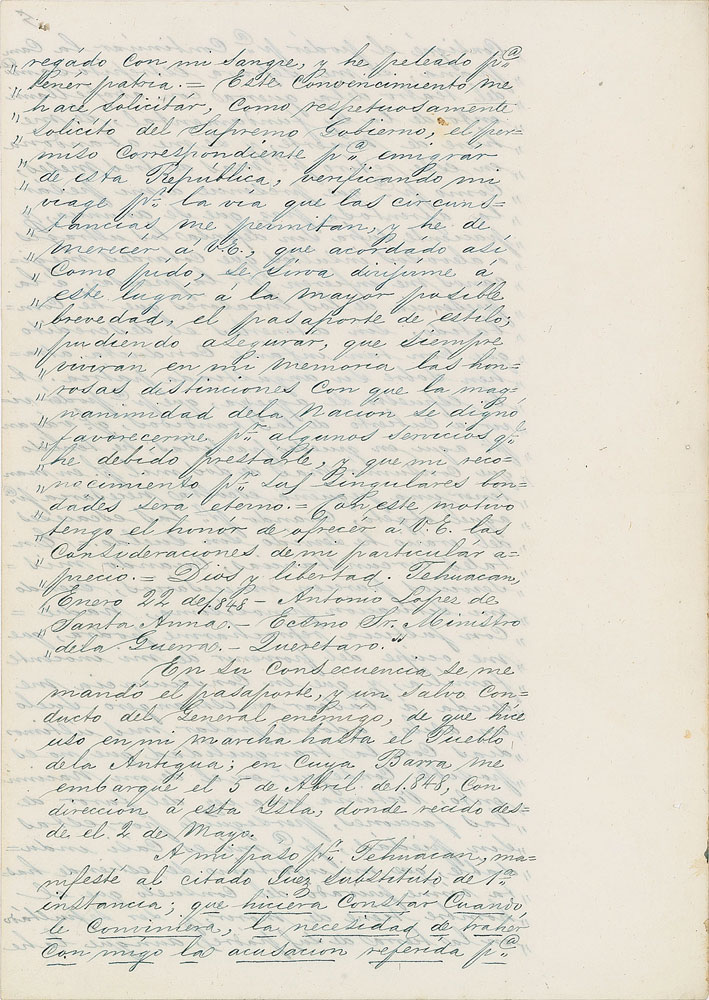 „ regado con mi sangre, y he peleado p.ª
„ tenér patria. = Este Convencimiento me
„ hace solicitár, como respetuosamente
„ solicíto del Supremo Gobierno, el per=
„ míso correspondiente p.ª emigrár
„ de esta República, verificando mi
„ viage p.r la vía que las circuns=
„ tancias me permitan, y he de
„ merecér á V.E., que acordádo así
„ como pído, se sírva dirijírme á
„ este lugár á la mayor posible
„ brevedad, el pasaporte de estílo;
„ pudiendo asegurar, que siempre
„ vivirán en mi memoria las hon=
„ rosas distinciones con que la mag=
„ nanimidad dela Nacion se dignó
„ favorecerme p.r algunos servicios q.e
„ he debído prestarle, y que mi reco=
„ nocimiento p.r sus singuláres bon=
„ dádes será eterno. = Con este motívo
„ tengo el honór de ofrecér á V.E. las
„ Consideraciones de mi particular a=
„ precio. = Dios y libertad. Tehuacan,
„ Enero 22 de 1.848 – Antonio Lopez de
„ Santa Anna. – Ecsmo Sr. Ministro
„ dela Guerra. – Queretaro. “
En su Consecuencia se me
mandó el pasaporte, y un Salvo Con=
ducto del General enemigo, de que híce
uso en mi marcha hasta el Pueblo
dela Antígua; en cuya Barra me
embarqué el 5 de Abríl de 1.848, con
direccion á esta Ysla, donde recído des=
de el 2 de Mayo.
A mi paso p.r Tehuacan, ma=
nifesté al citado Juez substituto de 1.ª
instancia; que hiciéra Constár Cuando
le Conviniera, la necesidad de traher
Con migo la acusacion referida p.ª